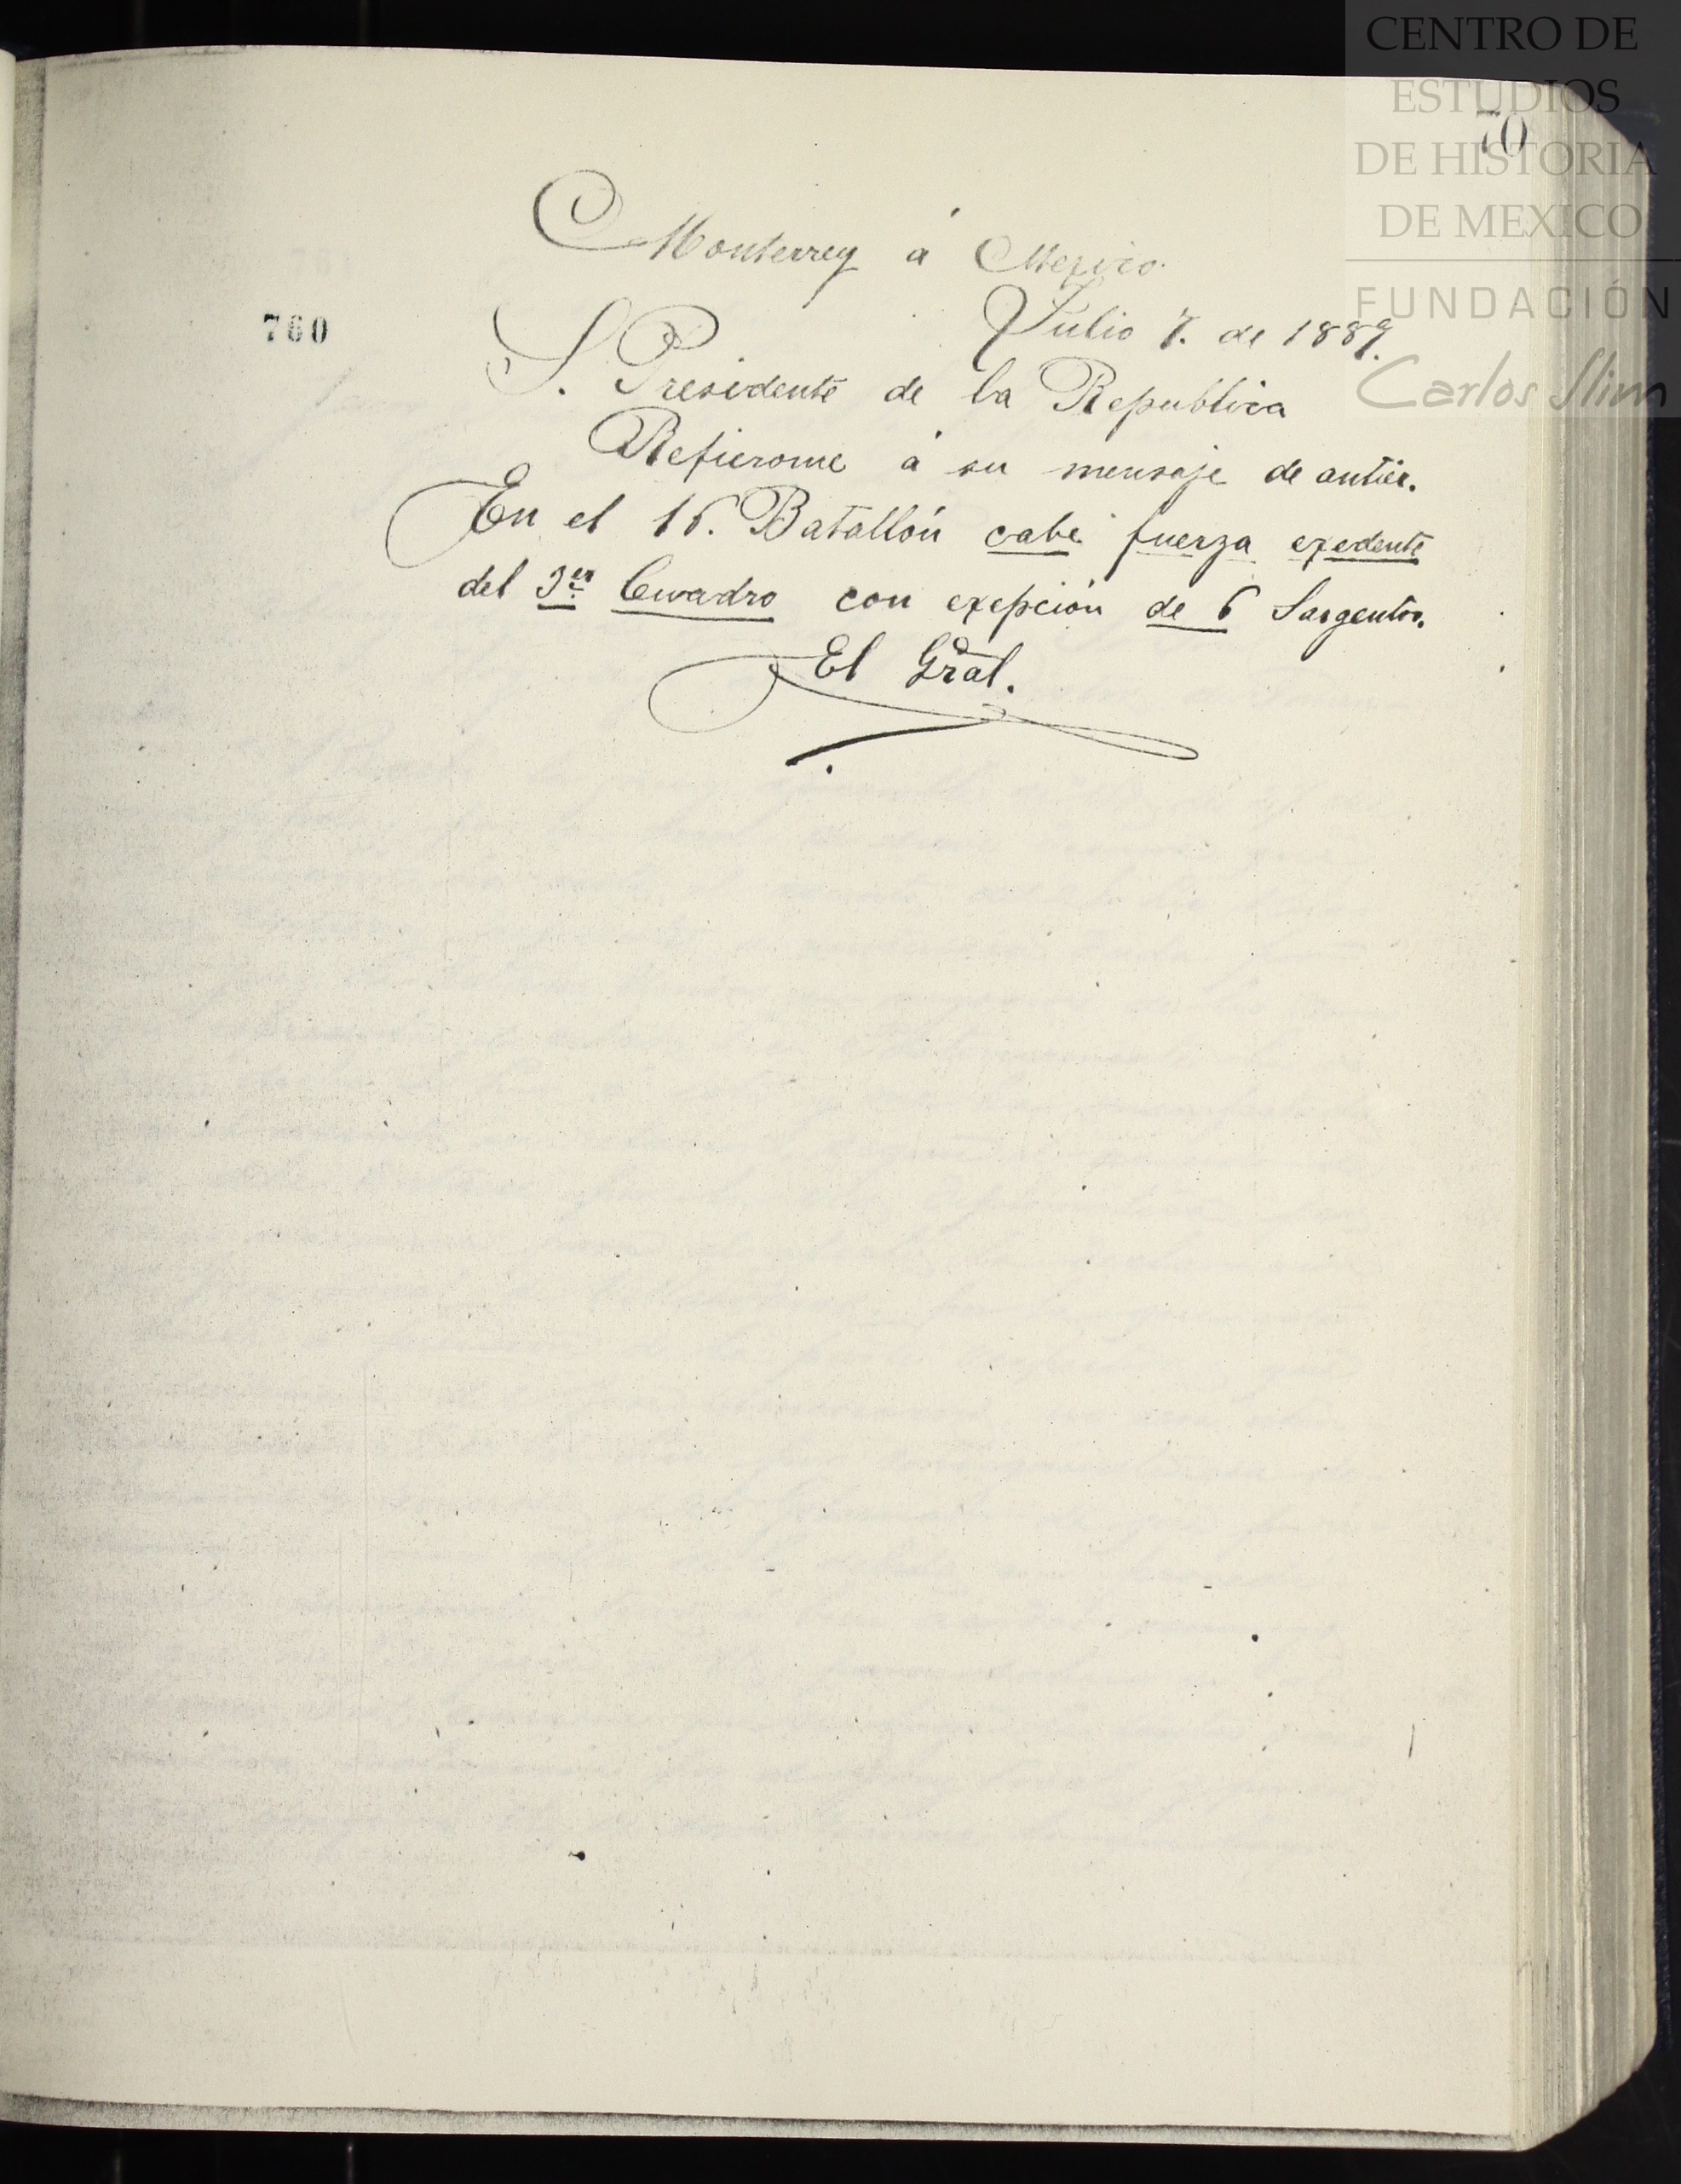 CENTRO DE
ESTUDIOS
DE HISTORIA
DE MEXICO
FUNDACIÓN
Carlos Slim
70
Monterrey á Mexico.
760
Julio 7. de 1889.
S. Presidente de la Republica
Refierome á su mensaje de antier.
En el 16. Batallón cabe fuerza exedente
del 3er Cuadro con exepción de 6 Sargentos.
El Gral.